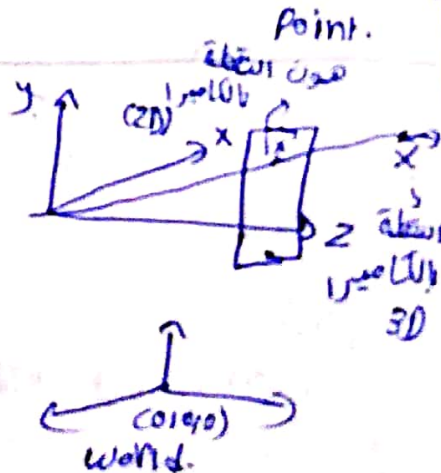 Point.
هون النقطة
بالكاميرا
(2D)
y
x
x
z
النقطة
بالكاميرا
3D
(0,0,0)
world.